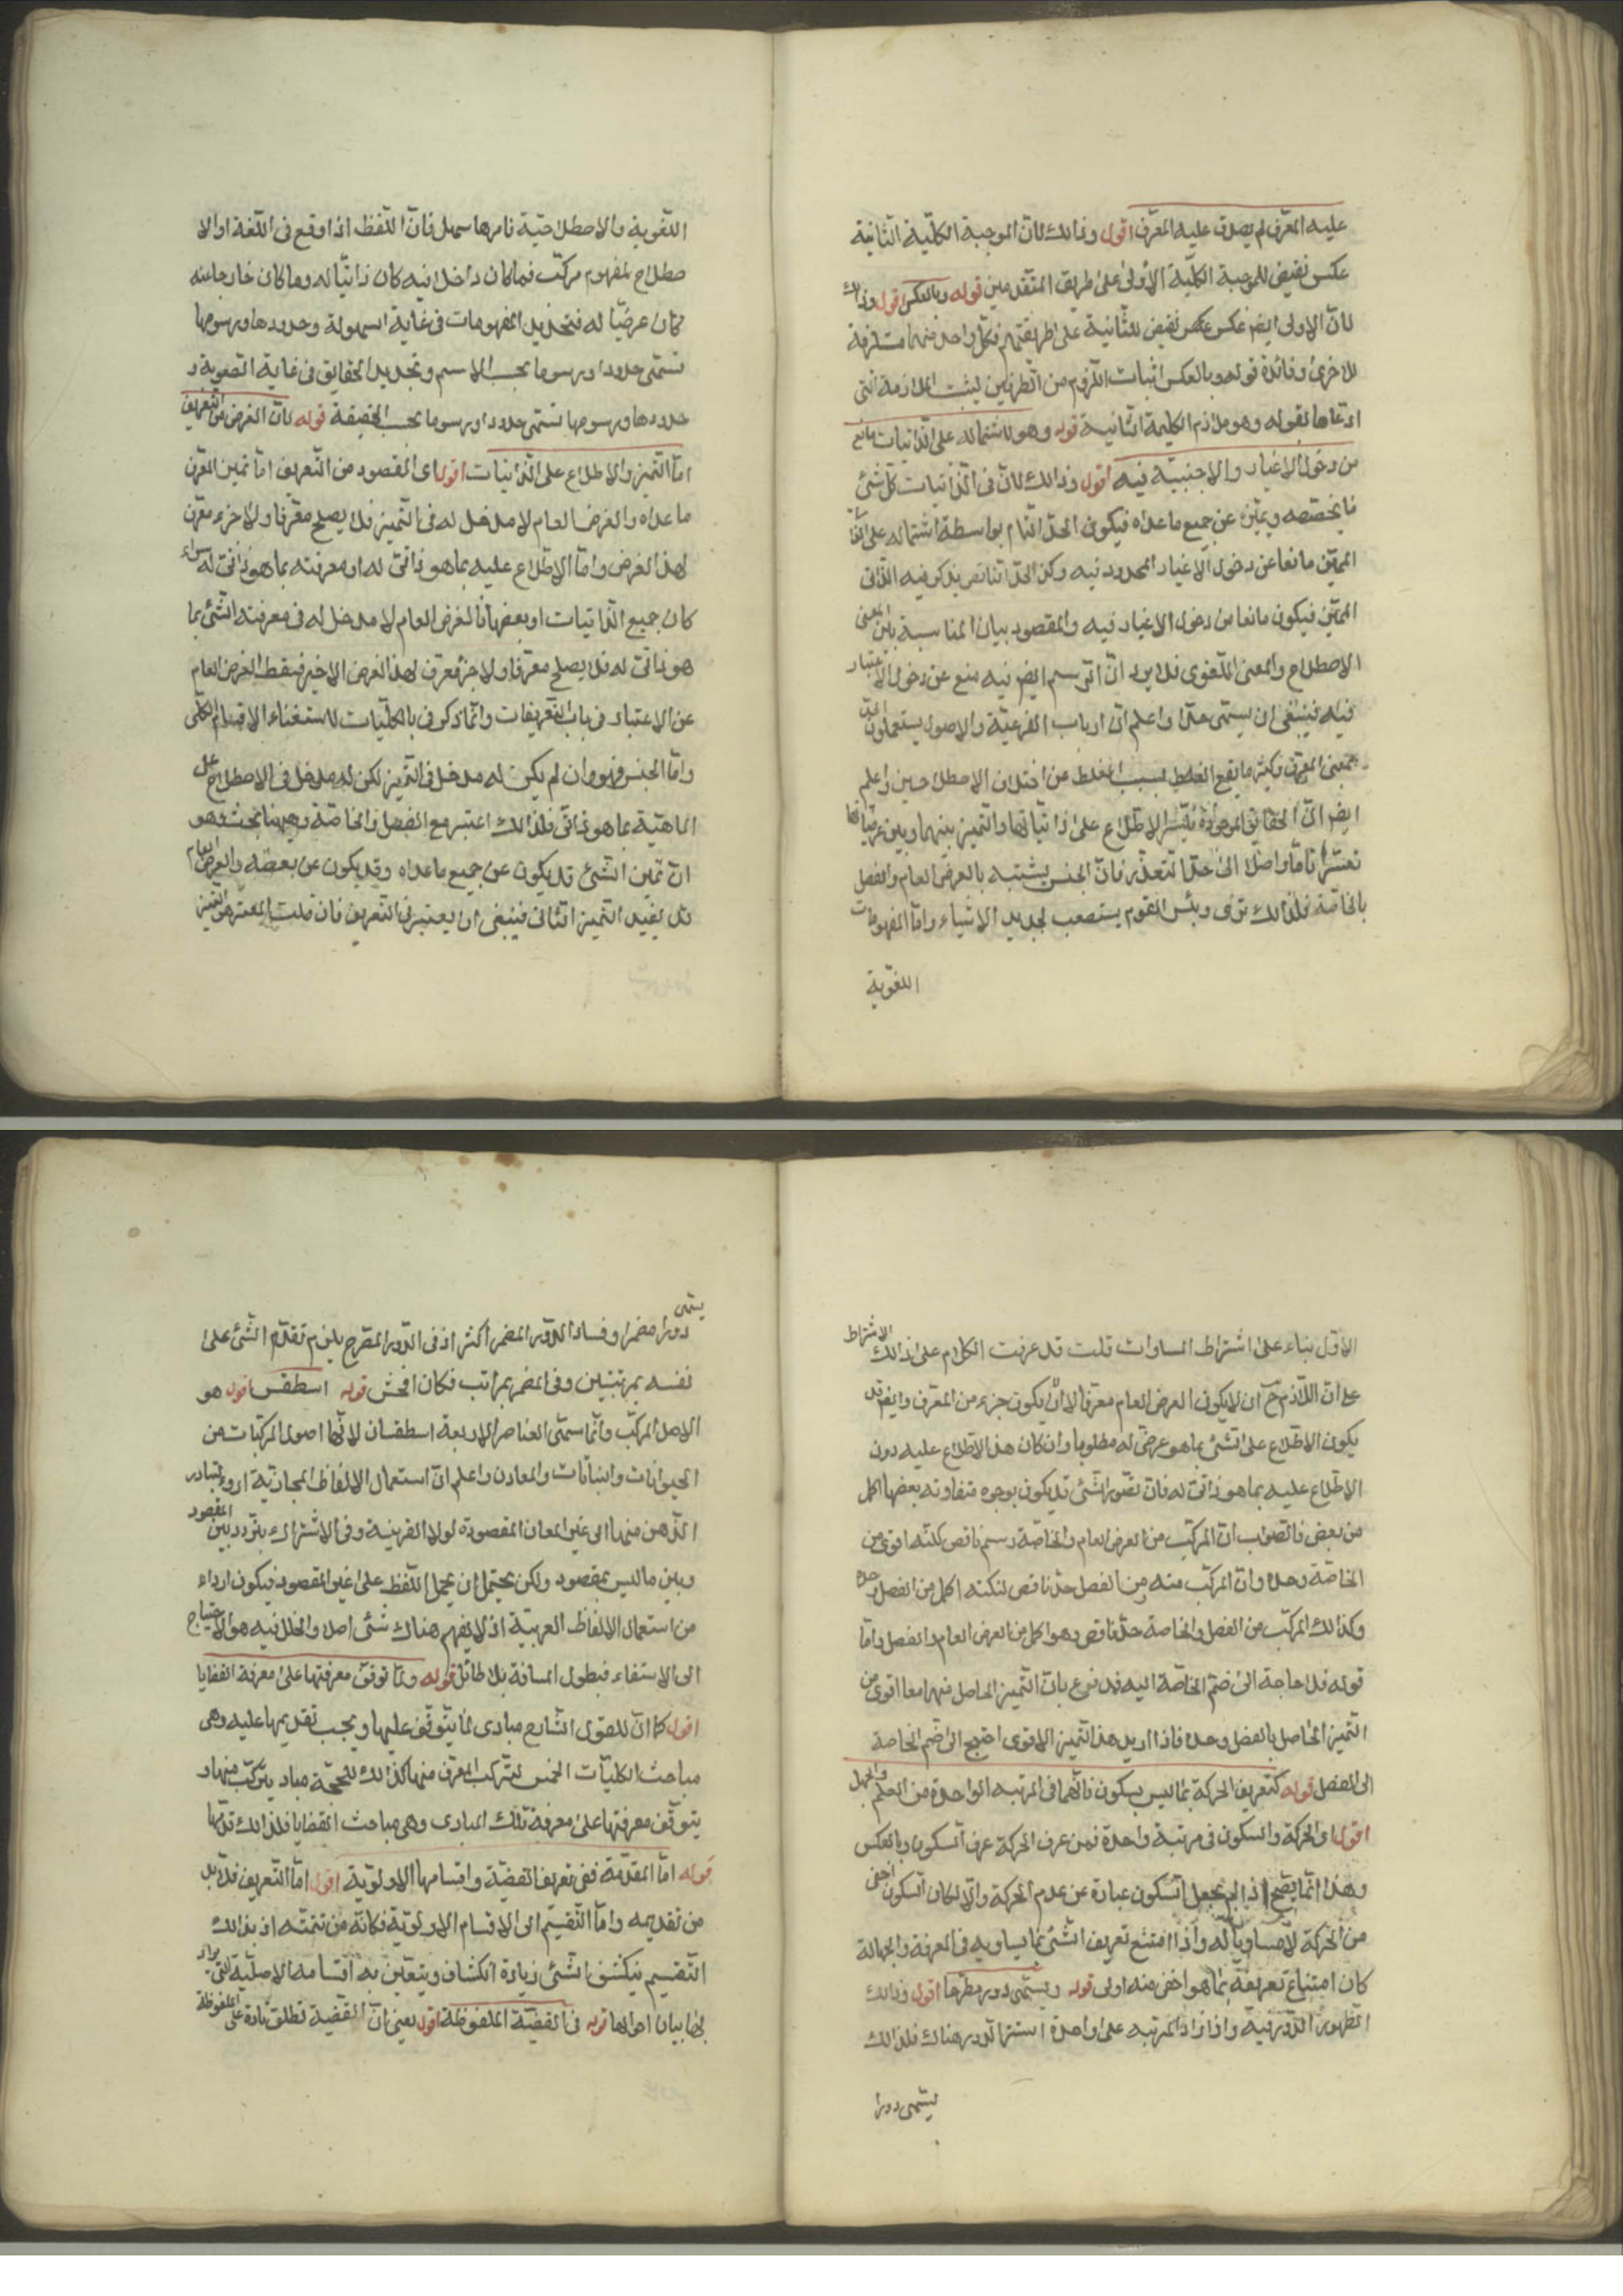 عليه المعرف لم يصدق عليه المعرف اقول وذالك لان الموجبة الكلية الثانية
عكس نقيض للموجبة الكلية الأولى على طريق المتقدمين قوله وبالعكس اقول وذالك
لان الاولى ايضا عكس عكس نقيض للثانية على طريقتهم فكل واحد منهما مستلزمة
للاخرى وفائدة قوله وبالعكس اثبات اللزوم من الطرفين ليثبت الملازمة التى
ادعاها بقوله وهو ملازم الكلية الثانية قوله وهو لاشتماله على الذاتيات مانع
من دخول الاغيار والاجنبية فيه اقول وذالك لان فى الذاتيات كل شئ
ما يخصصه ويميزه عن جميع ما عداه فيكون الحد التام بواسطة اشتماله على الذاتى
المميز مانعا عن دخول الاغيار المحدود فيه وكذا الحد الناقص يذكر فيه الذاتى
المميز فيكون مانعا من دخول الاغيار فيه والمقصود بيان المناسبة بين المعنى
الاصطلاحى والمعنى اللغوى فلا يرد ان الرسم ايضا فيه منع عن دخول الاغيار
فيه فينبغى ان يسمى حدا واعلم ان ارباب العربية والاصول يستعملون الحد
بمعنى المعرف وكثيرا ما يقع الغلط بسبب الغفلة عن اختلاف الاصطلاحين واعلم
ايضا ان الحقائق الموجودة يتعسر الاطلاع على ذاتياتها والتمييز بينها وبين عرضياتها
تعسرا تاما واصلا الى حد التعذر فان الجنس يشتبه بالعرض العام والفصل
بالخاصة فلذالك ترى رئيس القوم يستصعب تحديد الاشياء واما المفهومات
اللغوية
اللغوية والاصطلاحية فامرها سهل فان اللفظ اذا وقع فى اللغة او الا
صطلاح لمفهوم مركب فما كان داخلا فيه كان ذاتيا له وما كان خارجا عنه
كان عرضيا له فتحديد المفهومات فى غاية السهولة وحدودها ورسومها
تسمى حدودا ورسوما بحسب الاسم وتحديد الحقائق فى غاية الصعوبة و
حدودها ورسومها تسمى حدودا ورسوما بحسب الحقيقة قوله لان الغرض من التعريف
اما التميز والاطلاع على الذاتيات اقول اى المقصود من التعريف اما تميز المعرف
ما عداه والعرض العام لا مدخل له فى التميز فلا يصلح معرفا ولا جزء معرف
لهذا الغرض واما الاطلاع عليه بما هو ذاتى له او معرفته بما هو ذاتى له سواء
كان جميع الذاتيات او بعضها فالعرض العام لا مدخل له فى معرفته الشئ بما
هو ذاتى له فلا يصلح معرفا ولا جزء معرف لهذا الغرض الاخير فسقط العرض العام
عن الاعتبار فى باب التعريفات وانما ذكر فى باب الكليات لاستغناء الاقسام الكلى
واما الجنس فهو وان لم يكن له مدخل فى التميز لكن له مدخل فى الاصطلاح على
الماهية بما هو ذاتى فلذالك اعتبر مع الفصل والخاصة وههنا بحث وهو
ان تميز الشئ قد يكون عن جميع ما عداه وقد يكون عن بعضه والعرض العام
قد يفيد التميز الثانى فينبغى ان يعتبر فى التعريف فان قلت المعتبر هو التميز
الأول بناء على اشتراط المساوات قلت قد عرفت الكلام على ذالك الاشتراط
على ان اللازم ح ان لا يكون العرض العام معرفا لا ان لا يكون جزء من المعرف وايضا قد
يكون الاطلاع على الشئ بما هو عرضى له مطلوبا وان كان هذا الاطلاع عليه دون
الاطلاع عليه بما هو ذاتى له فان تصور الشئ قد يكون بوجوه متفاوته بعضها اكمل
من بعض فالصواب ان المركب من العرض العام والخاصة رسم ناقص لكنه اقوى من
الخاصة وحدها وان المركب منه من الفصل حد ناقص لكنه اكمل من الفصل وحده
وكذالك المركب من الفصل والخاصة حد ناقص وهو اكمل من العرض العام والفصل واما
قوله فلا حاجة الى ضم الخاصة اليه فمدفوع بان التميز الحاصل منهما معا اقوى من
التميز الحاصل بالفصل وحده فاذا اريد هذا التميز الاقوى احتيج الى ضم الخاصة
الى الفصل قوله كتعريف الحركة بما ليس بسكون فانهما فى المرتبه الواحدة من العلم والجهل
اقول اى الحركة والسكون فى مرتبة واحدة فمن عرف الحركة عرف السكون وبالعكس
وهذا انما يصح اذا لم يجعل السكون عبارة عن عدم الحركة والا لكان السكون اخفى
من الحركة لا مساويا له واذا امتنع تعريف الشئ بما يساويه فى المعرفة والجهالة
كان امتناع تعريفه بما هو اخفى منه اولى قوله ويسمى دورا مصرحا اقول وذالك
لظهور الدور فيه واذا زاد المرتبه على واحدة استتر الدور هناك فلذالك
يسمى دورا
يسمى
دورا مضمرا وفساد الدور المضمر اكثر اذ فى الدور المصرح يلزم تقدم الشئ على
نفسه بمرتبتين وفى المضمر بمراتب فكان افحش قوله اسطقس اقول هو
الاصل المركب وانما سمى العناصر الاربعة اسطقسات لانها اصول المركبات من
الحيوانات والنباتات والمعادن واعلم ان استعمال الالفاظ المجازية اردء لتبادر
الذهن منها الى غير المعان المقصودة لولا القرينة وفى الاشتراك يتردد بين المقصود
وبين ما ليس بمقصود ولكن يحتمل ان يحمل اللفظ على غير المقصود فيكون ارداء
من استعمال الالفاظ الغريبة اذ لا يفهم هناك شئ اصلا والخلل فيه هو الاحتياج
الى الاستفاء فيطول المسافة بلا طائل قوله ولما توقف معرفتها على معرفة القضايا
اقول كما ان للقول الشارح مبادى لما يتوقف عليها ويجب تقديمها عليه وهى
مباحث الكليات الخمس لتركب المعرف منها كذالك للحجة مباد يتركب منها و
يتوقف معرفتها على معرفة تلك المبادى وهى مباحث القضايا فلذالك قدمها
قوله اما المقدمة ففى تعريف القضية واقسامها الاولوية اقول اما التعريف فلا بد
من تقديمه واما التقسيم الى الاقسام الاولوية فكانه من تتمته اذ بذالك
التقسيم ينكشف الشئ زيادة انكشاف ويتعين به اقسامه الاصلية التى يراد
بها بيان احوالها قوله فالقضية الملفوظة اقول يعنى ان القضية تطلق تارة على الملفوظة